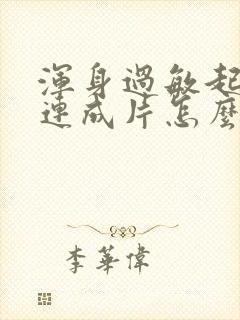 渾身過敏起
連成片怎麼
李華偉